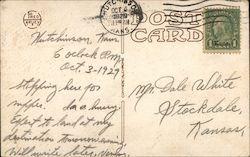 HUTCHINSON
OCT 4
KANS.
POST
CARD
Hutchinson, Kan
6 oclock P.m.
Oct. 3-1929
Stopping here for
Expect to land at my
destination tomorrow
Will write later,
Mr Dale White
Stockdale
Kansas